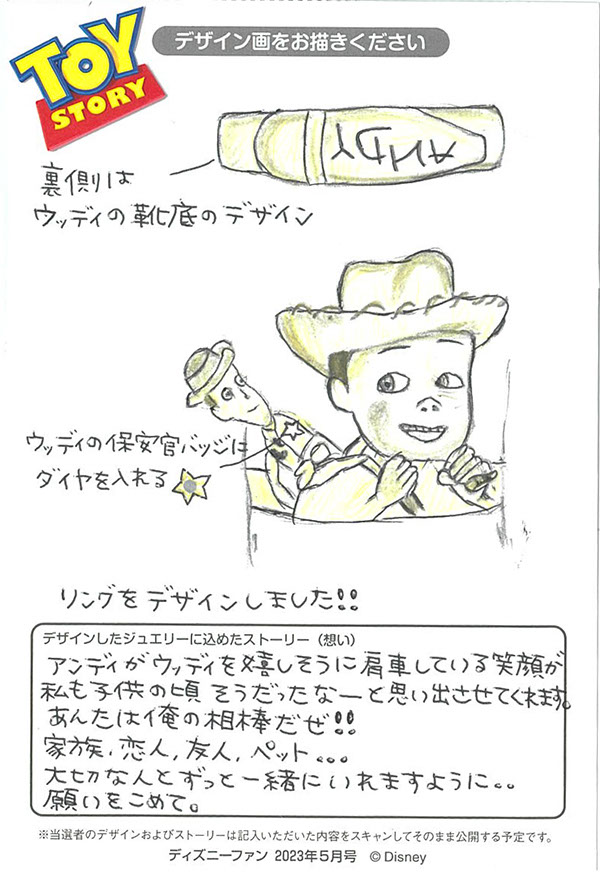 TOY
STORY
デザイン画をお描きください
ANDY
裏側は
ウッディの靴底のデザイン
ウッディの保安官バッジに
ダイヤを入れる
リングをデザインしました!!
デザインしたジュエリーに込めたストーリー（想い）
アンディがウッディを嬉しそうに肩車している笑顔が
私も子供の頃そうだったなーと思い出させてくれます。
あんたは俺の相棒だぜ!!
家族,恋人,友人,ペット...
大切な人とずっと一緒にいれますように..
願いをこめて。
※当選者のデザインおよびストーリーは記入いただいた内容をスキャンしてそのまま公開する予定です。
ディズニーファン 2023年5月号 ©Disney